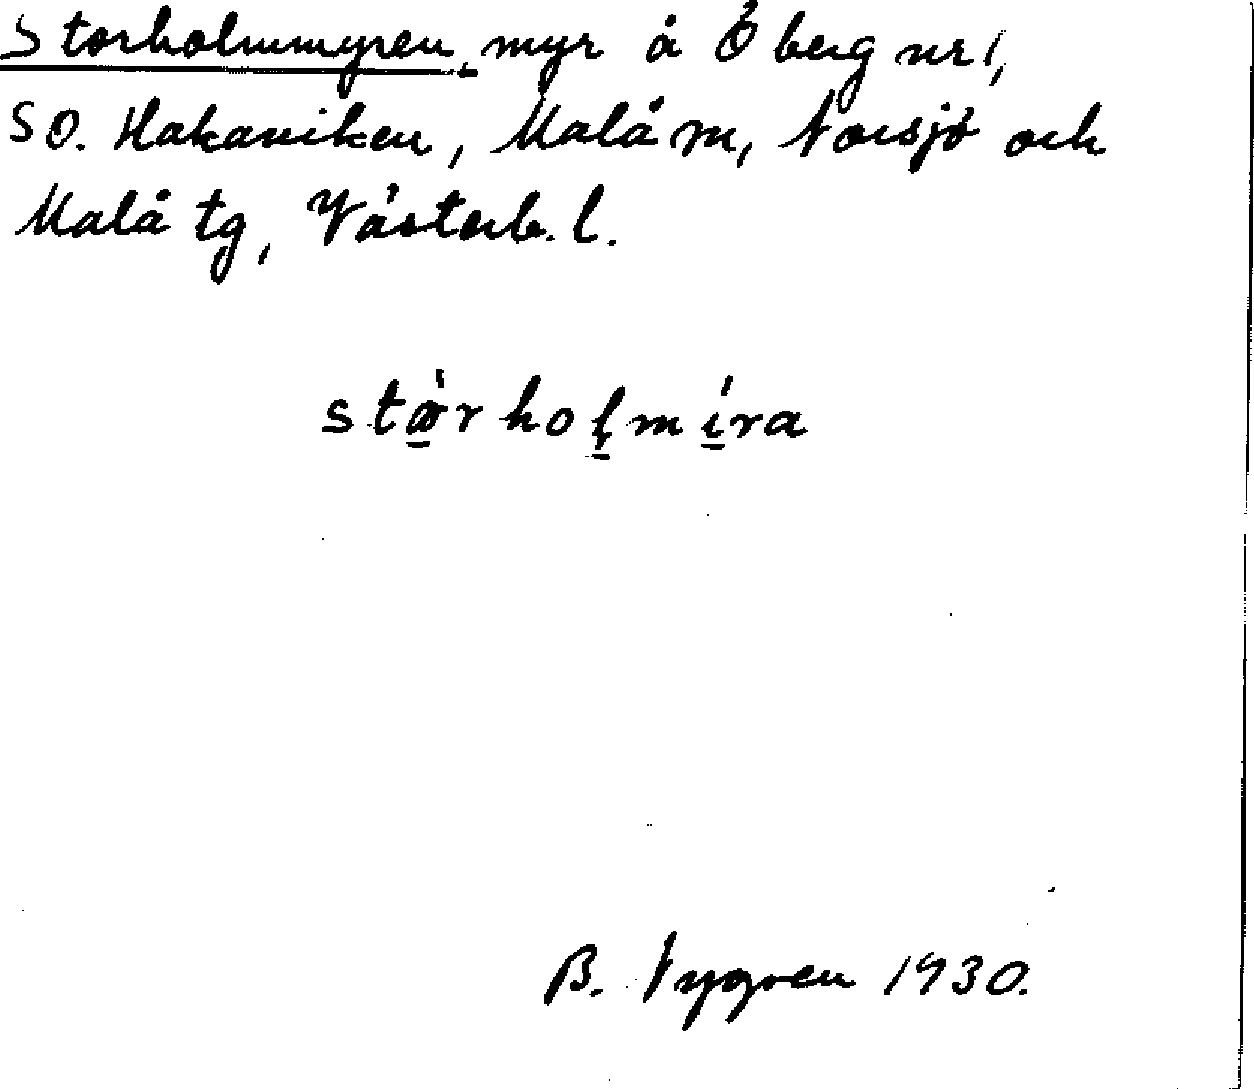 Storholmmyren, myr å Öberg nr 1,
SO. Hakaviken, Malå sn, Norsjö och
Malå tg, Västerb. l.
stọ̀rhoḷmíra
B. Nygren 1930.